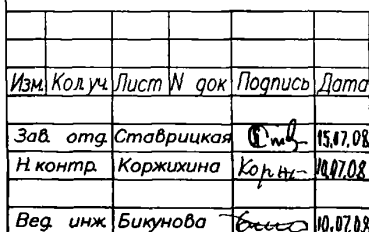 Изм. Кол.уч. Лист N док Подпись Дата
Зав. отд. Ставрицкая 15.07.08
Н.контр. Коржихина Корж 10.07.08
Вед. инж. Бикунова 10.07.08